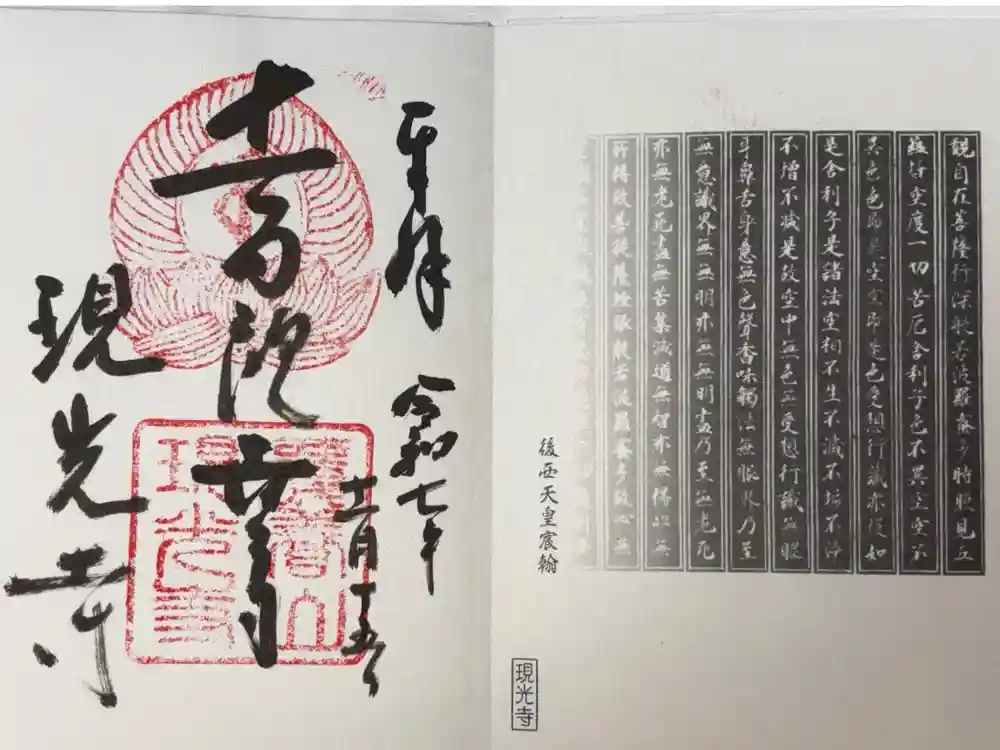 観自在菩薩行深般若波羅蜜多時照見五
蘊皆空度一切苦厄舎利子色不異空空不
異色色即是空空即是色受想行識亦復如
是舎利子是諸法空相不生不滅不垢不浄
不増不減是故空中無色無受想行識無眼
耳鼻舌身意無色聲香味觸法無眼界乃至
無意識界無無明亦無無明盡乃至無老死
亦無老死盡無苦集滅道無智亦無得以無
所得故菩提薩埵依般若波羅蜜多故心無
後西天皇宸翰
現光寺
奉拝
令和七年
十一月十五日
十一面観世音
現光寺